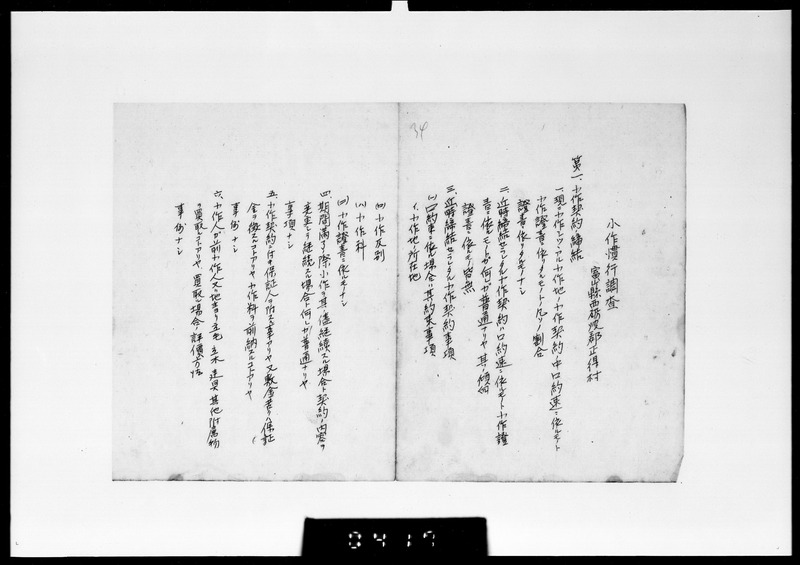 34
小作慣行調査
富山縣西礪波郡正得村
第一、小作契約締結
一、現ニ小作シツツアル小作地ノ小作契約中口約束ニ依ルモノト
小作證書ニ依リタルモノトノ凡ソノ割合
證書ニ依リタルモノナシ
二、近時締結セラレタル小作契約ハ口約束ニ依ルモノト小作證
書ニ依ルモノト何レカ普通ナリヤ其ノ傾向
證書ニ依ルモノ皆無
三、近時締結セラレタル小作契約事項
(一)口約束ニ依ル場合ハ其約束事項
イ、小作地ノ所在地
(ロ)小作反別
(ハ)小作料
(二)小作證書ニ依ルモノナシ
四、期間満了ノ際小作ヲ其儘継続スル場合ト契約ノ内容ヲ
更生シテ継続スル場合ト何レカ普通ナリヤ
事項ナシ
五、小作契約ニ付キ保証人ヲ附スル事アリヤ又敷金若クハ保証
金ヲ徴スルコトアリヤ小作料ヲ前納スルコトアリヤ
事例ナシ
六、小作人カ前小作人又ハ地主ヨリ立毛 立木 建具 其他附属物
ヲ買取ルコトアリヤ、買取ル場合ノ評價方法
事例ナシ
0417